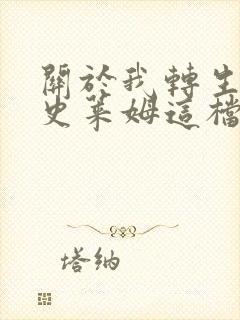 關於我轉生
史萊姆這檔
塔納